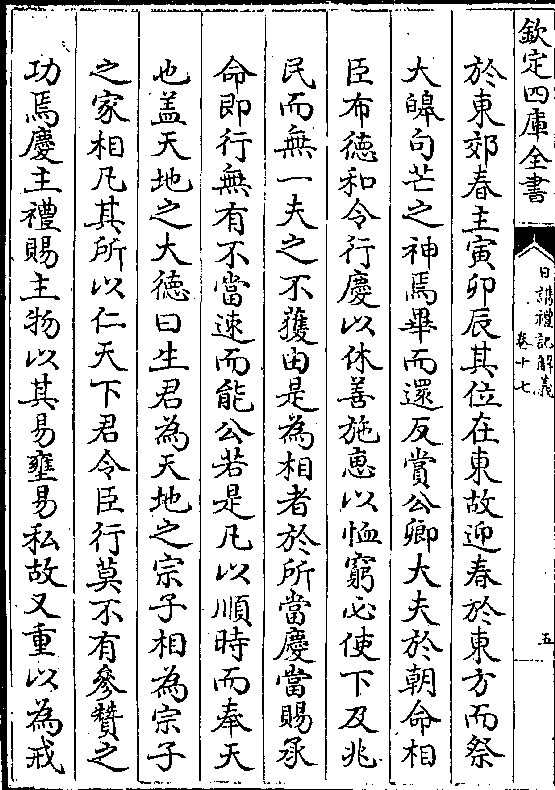 欽定四庫全書
日講禮記解義
卷十七
五
於東郊春主寅卯辰其位在東故迎春於東方而祭
大皥句芒之神焉畢而還反賞公卿大夫於朝命相
臣布德和令行慶以休善施惠以恤窮必使下及兆
民而無一夫之不獲由是為相者於所當慶當賜承
命即行無有不當速而能公若是凡以順時而奉天
也盖天地之大德曰生君為天地之宗子相為宗子
之家相凡其所以仁天下君令臣行莫不有參贊之
功焉慶主禮賜主物以其易壅易私故又重以為戒